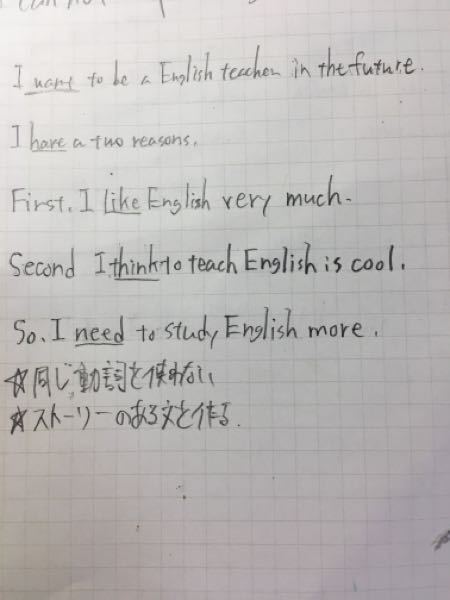 I want to be a English teacher in the future.
I have a two reasons.
First. I like English very much.
Second I think to teach English is cool.
So. I need to study English more.
☆同じ動詞を使わない
☆ストーリーのある文を作る.